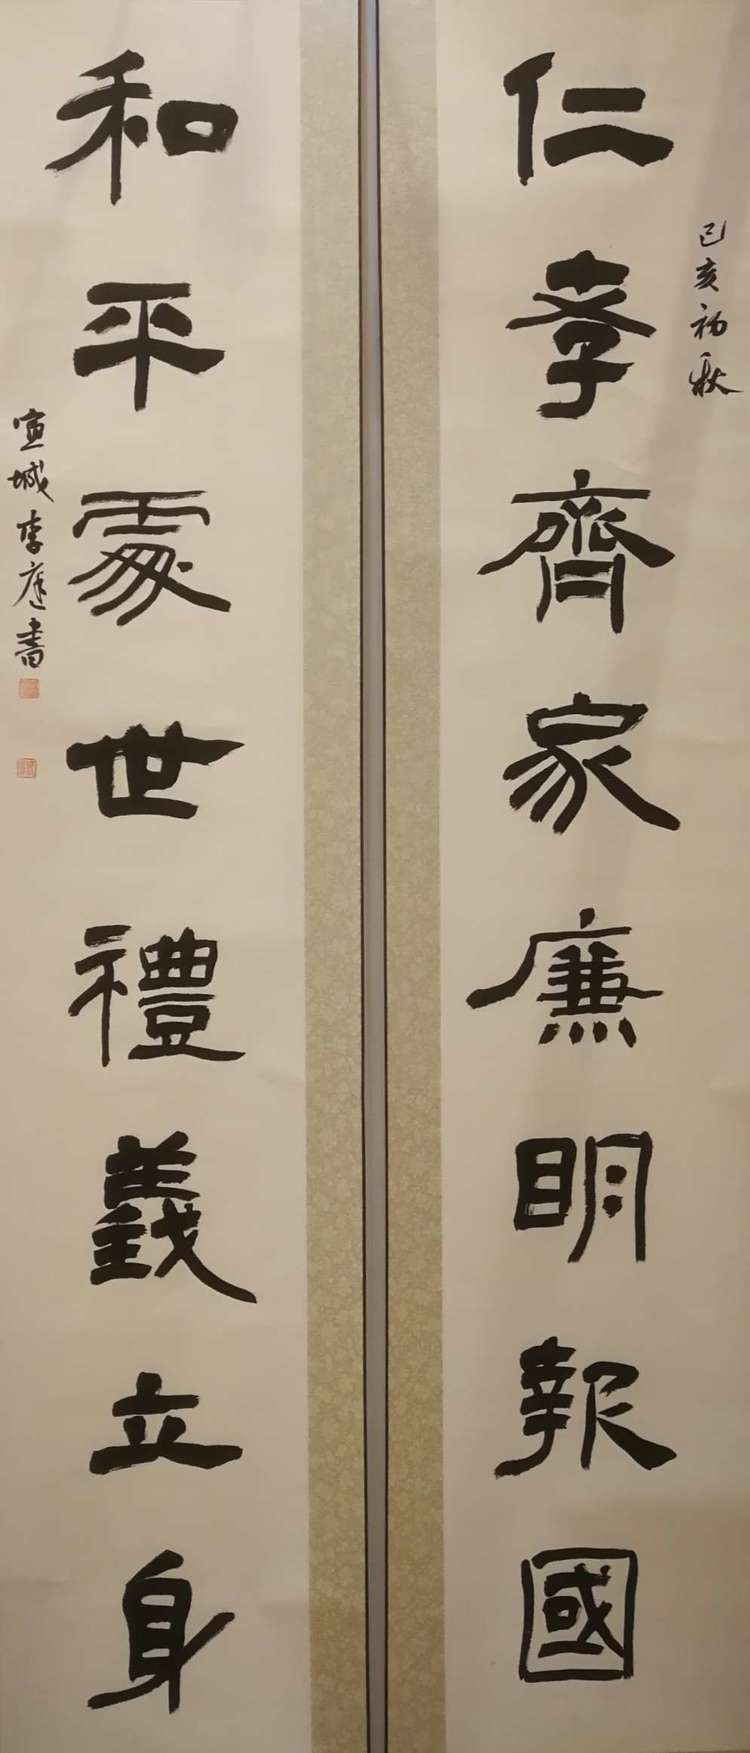 己亥初秋
仁孝齊家廉明報國
和平處世禮義立身
宣城李庭書